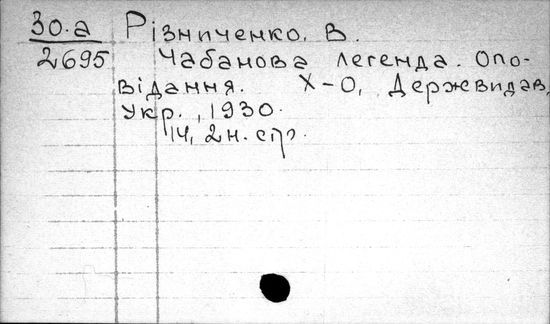 30.а Різниченко, В.
2695 Чабанова легенда. Опо-
відання. Х-О, Держвидав
Укр., 1930.
14, 2 н. стр.